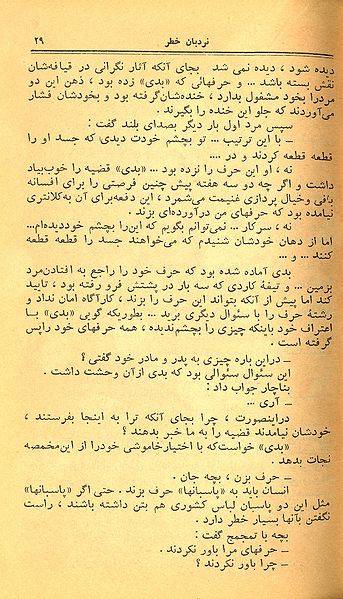 نردبان خطر ۲۹
دیده شود ، دیده نمی شد بجای آنکه آثار نگرانی در قیافه‌شان
نقش بسته باشد ... و حرفهائی که «بدی» زده بود ، ذهن این دو
مردرا بخود مشغول بدارد ، خنده‌شان‌گرفته بود و بخودشان فشار
می‌آوردند که جلو این خنده را بگیرند .
سپس مرد اول بار دیگر بصدای بلند گفت :
ــ با این ترتیب ... تو بچشم خودت دیدی که جسد او را
قطعه قطعه کردند و در ....
نه ، او این حرف را نزده بود ... «بدی» قضیه را خوب‌بیاد
داشت و اگر چه دو سه هفته پیش چنین فرصتی را برای افسانه
بافی وخیال پردازی غنیمت می‌شمرد ، این دفعه‌برای آن به‌کلانتری
نیامده بود که حرفهای من درآورده‌ای بزند .
نه ، سرکار ... نمی‌توانم بگویم که‌این‌را بچشم خوددیده‌ام...
اما از دهان خودشان شنیدم که می‌خواهند جسد را قطعه قطعه
کنند ... و ...
بدی آماده شده بود که حرف خود را راجع به افتادن‌مرد
بزمین ... و تیغهٔ کاردی که سه بار در پشتش فرو رفته بود ، تایید
کند اما پیش از آنکه بتواند این حرف را بزند ، کارآگاه امان نداد و
رشتهٔ حرف را با سئوال دیگری برید ... بطوریکه گویی «بدی» با
اعتراف خود باینکه چیزی را بچشم‌ندیده ، همه حرفهای خود راپس
گرفته است .
ــ دراین باره چیزی به پدر و مادر خود گفتی ؟
این سئوال سئوالی بود که بدی ازآن وحشت داشت .
بناچار جواب داد :
ــ آری ...
دراینصورت ، چرا بجای آنکه ترا به اینجا بفرستند ،
خودشان نیامدند قضیه را به ما خبر بدهند ؟
«بدی» خواست‌که با اختیارخاموشی خودرا از این‌مخمصه
نجات بدهد .
ــ حرف بزن ، بچه جان .
انسان باید به «پاسبانها» حرف بزند . حتی اگر «پاسبانها»
مثل این دو پاسبان لباس کشوری هم بتن داشته باشند ، راست
نگفتن بآنها بسیار خطر دارد .
بچه با تمجمج گفت :
ــ حرفهای مرا باور نکردند .
ــ چرا باور نکردند ؟